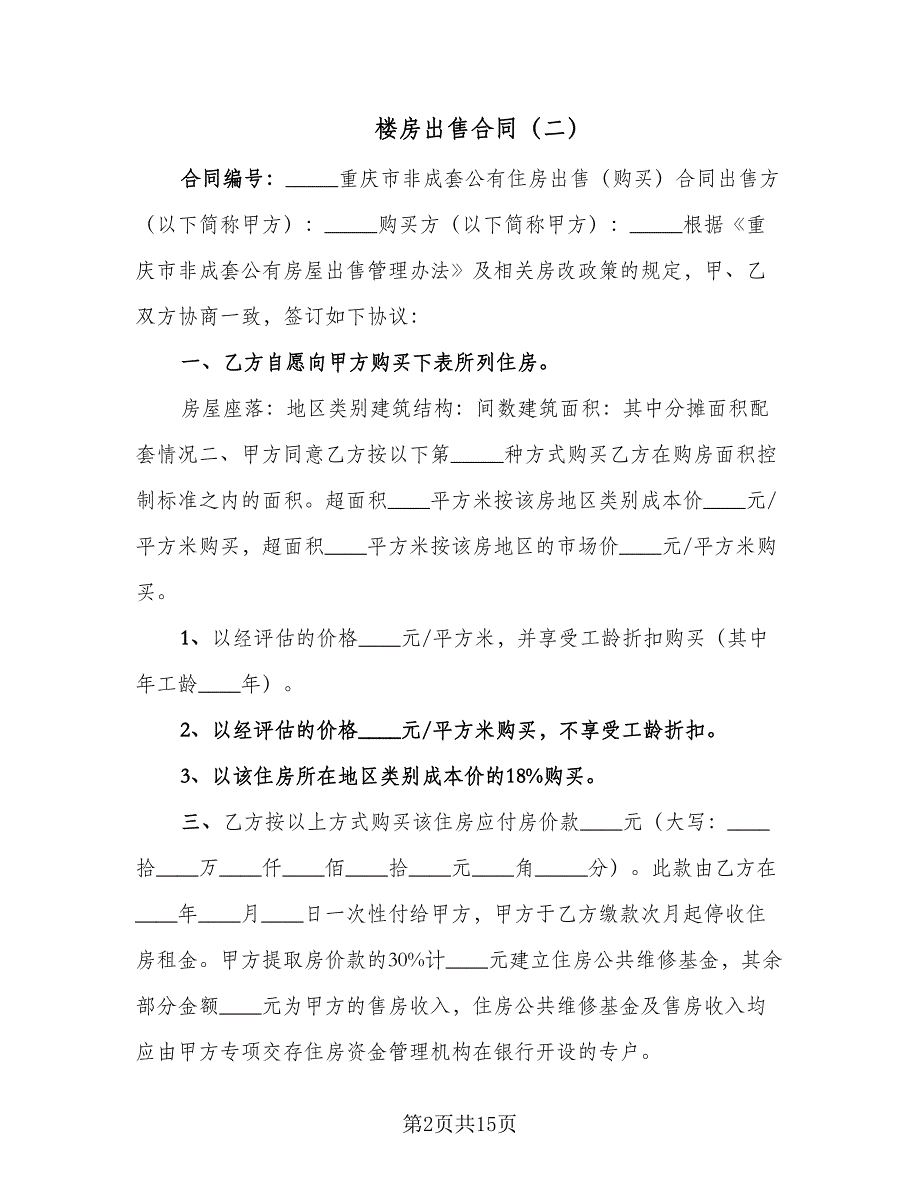 楼房出售合同（二）
合同编号：_____重庆市非成套公有住房出售（购买）合同出售方
（以下简称甲方）：_____购买方（以下简称甲方）：_____根据《重
庆市非成套公有房屋出售管理办法》及相关房改政策的规定，甲、乙
双方协商一致，签订如下协议：
一、乙方自愿向甲方购买下表所列住房。
房屋座落：地区类别建筑结构：间数建筑面积：其中分摊面积配
套情况二、甲方同意乙方按以下第_____种方式购买乙方在购房面积控
制标准之内的面积。超面积____平方米按该房地区类别成本价____元/
平方米购买，超面积____平方米按该房地区的市场价____元/平方米购
买。
1、以经评估的价格____元/平方米，并享受工龄折扣购买（其中
年工龄____年）。
2、以经评估的价格____元/平方米购买，不享受工龄折扣。
3、以该住房所在地区类别成本价的18%购买。
三、乙方按以上方式购买该住房应付房价款____元（大写：____
拾____万____仟____佰____拾____元____角_____分）。此款由乙方在
____年____月____日一次性付给甲方，甲方于乙方缴款次月起停收住
房租金。甲方提取房价款的30%计____元建立住房公共维修基金，其余
部分金额____元为甲方的售房收入，住房公共维修基金及售房收入均
应由甲方专项交存住房资金管理机构在银行开设的专户。
第2页共15页